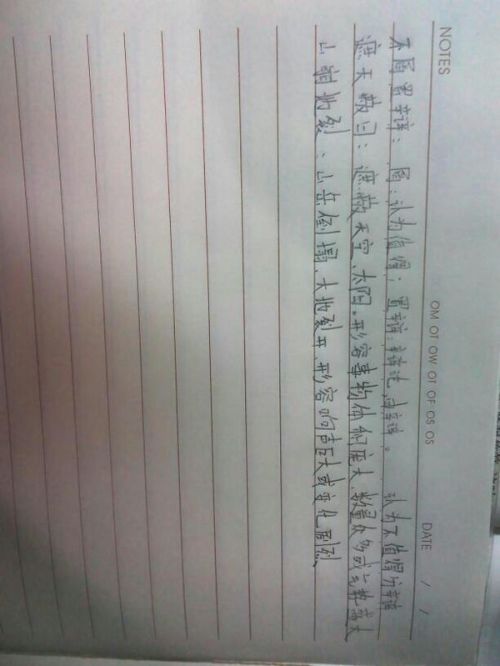 NOTES
OM OT OW OT OF OS OS
DATE / /
不屑置辩：屑：认为值得；置辩：辩论，申辩。 认为不值得分辩
遮天蔽日：遮蔽天空、太阳。形容事物体积庞大、数量众多或气势盛大
山崩地裂：山岳倒塌、大地裂开、形容响声巨大或变化剧烈、